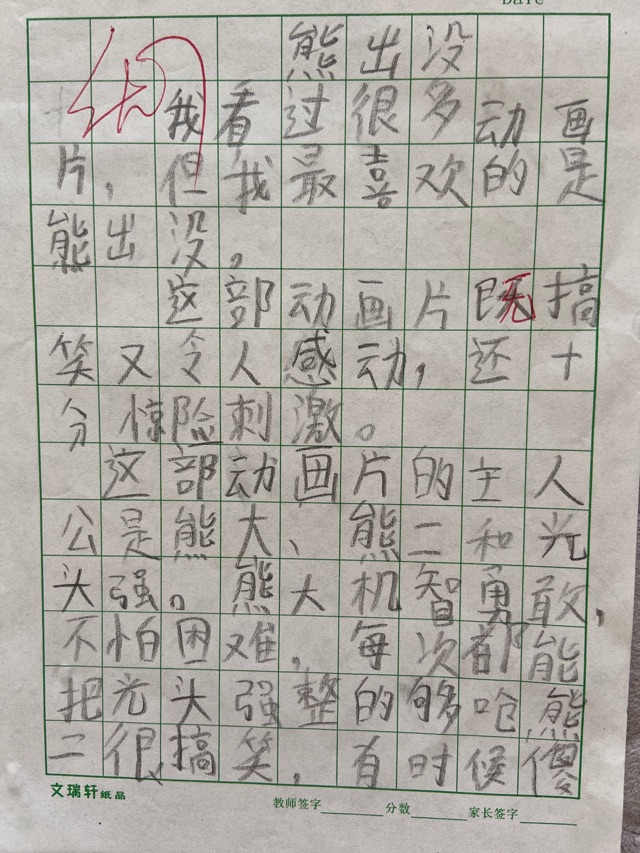 Date
熊出没
我看过很多动画
片，但我最喜欢的是
熊出没。
这部动画片既搞
笑又令人感动，还十
分惊险刺激。
这部动画片的主人
公是熊大、熊二和光
头强。熊大机智勇敢，
不怕困难，每次都能
把光头强整的够呛熊
二很搞笑，有时候傻
文瑞轩纸品
教师签字 分数 家长签字